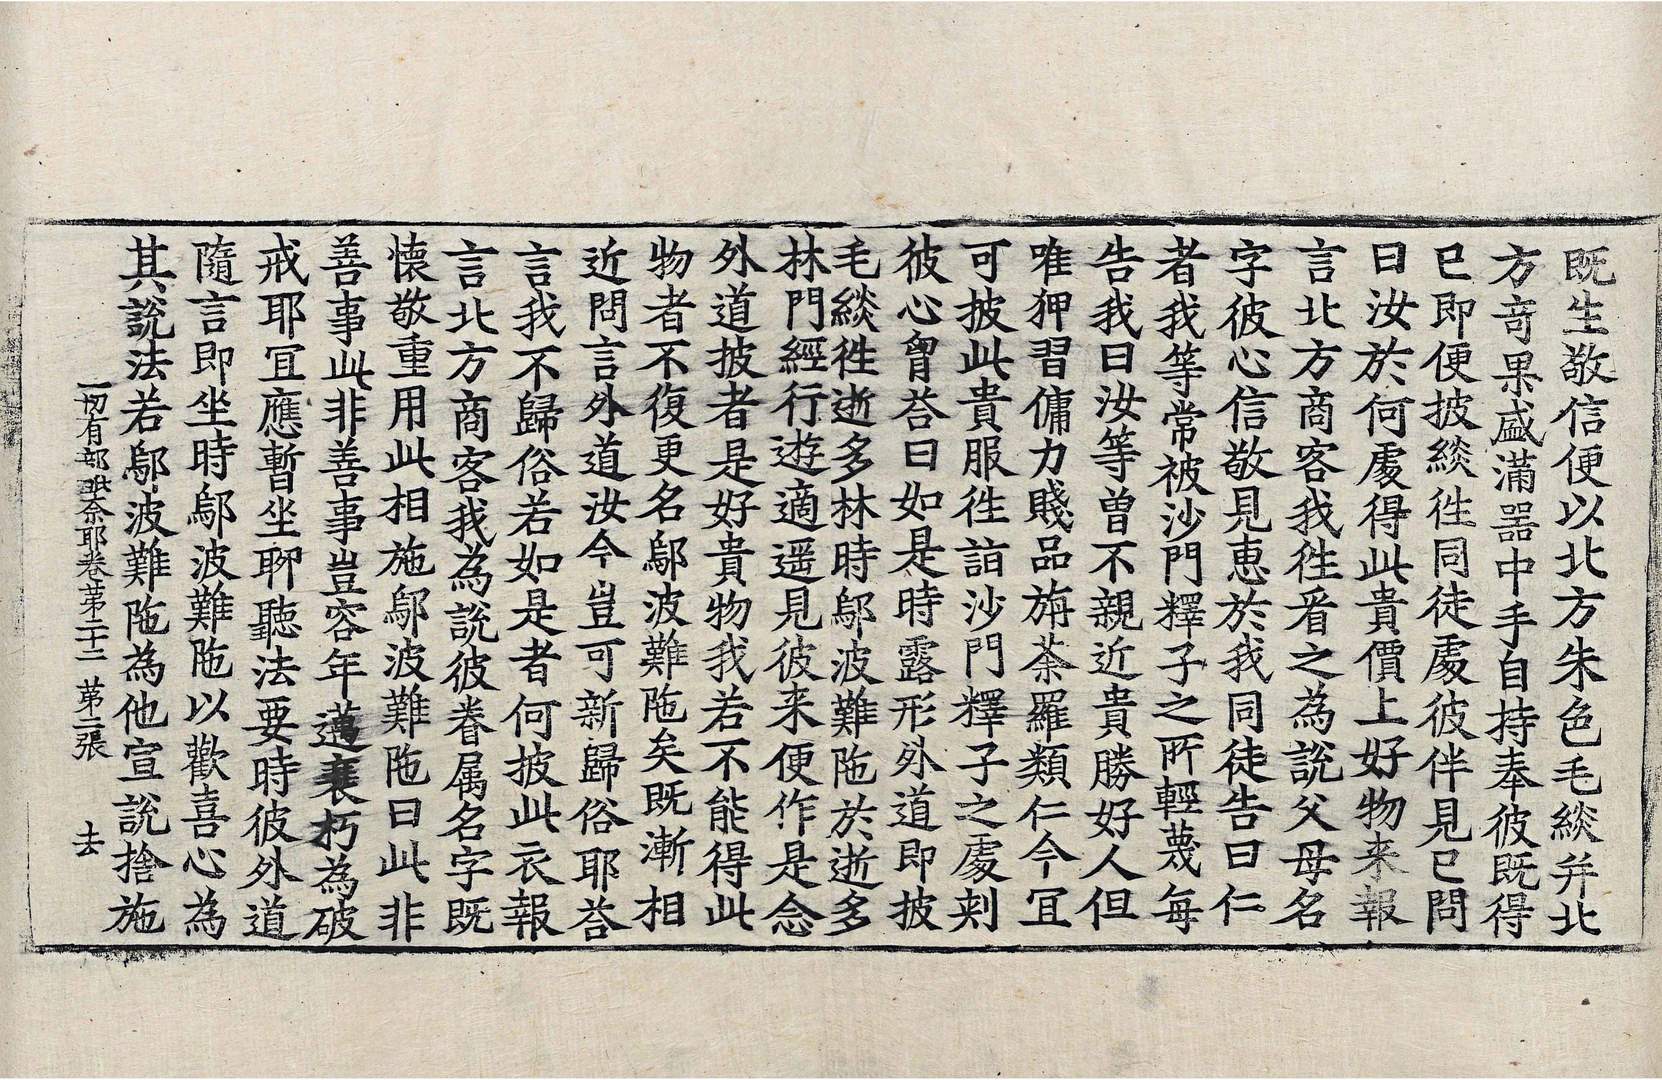 既生敬信便以北方朱色毛緂并北
方竒果盛滿器中手自持奉彼既得
已即便披緂徃同徒處彼伴見已問
曰汝於何處得此貴價上好物来報
言北方商客我徃看之為說父母名
字彼心信敬見惠於我同徒告曰仁
者我等常被沙門釋子之所輕蔑每
告我曰汝等曾不親近貴勝好人但
唯狎習傭力賤品旃荼羅類仁今冝
可披此貴服徃詣沙門釋子之處刾
彼心胷荅曰如是時露形外道即披
毛緂徃逝多林時鄔波難陁於逝多
林門經行遊適遥見彼来便作是念
外道披者是好貴物我若不能得此
物者不復更名鄔波難陁矣既漸相
近問言外道汝今豈可新歸俗耶荅
言我不歸俗若如是者何披此衣報
言北方商客我為說彼眷属名字既
懐敬重用此相施鄔波難陁曰此非
善事此非善事豈容年邁衰朽為破
戒耶冝應暫坐聊聽法要時彼外道
隨言即坐時鄔波難陁以歡喜心為
其說法若鄔波難陁為他宣說捨施
一切有部毗奈耶卷苐二十二 苐二張 去